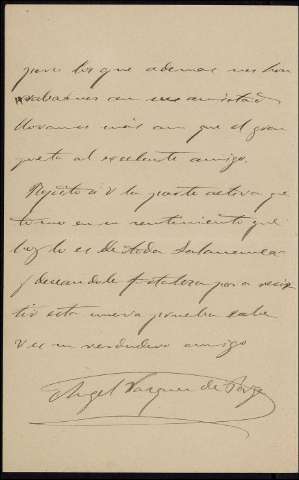 pero los que ademas nos hon
rabamos con su amistad
lloramos más aun que el gran
poeta al excelente amigo.
Repito á V la parte activa qe
tomo en su sentimiento que
hoy lo es de toda Salamanca
y deseandole fortaleza para resis
tir esta nueva prueba sabe
V es su verdadero amigo
Angel Vazquez de Parga